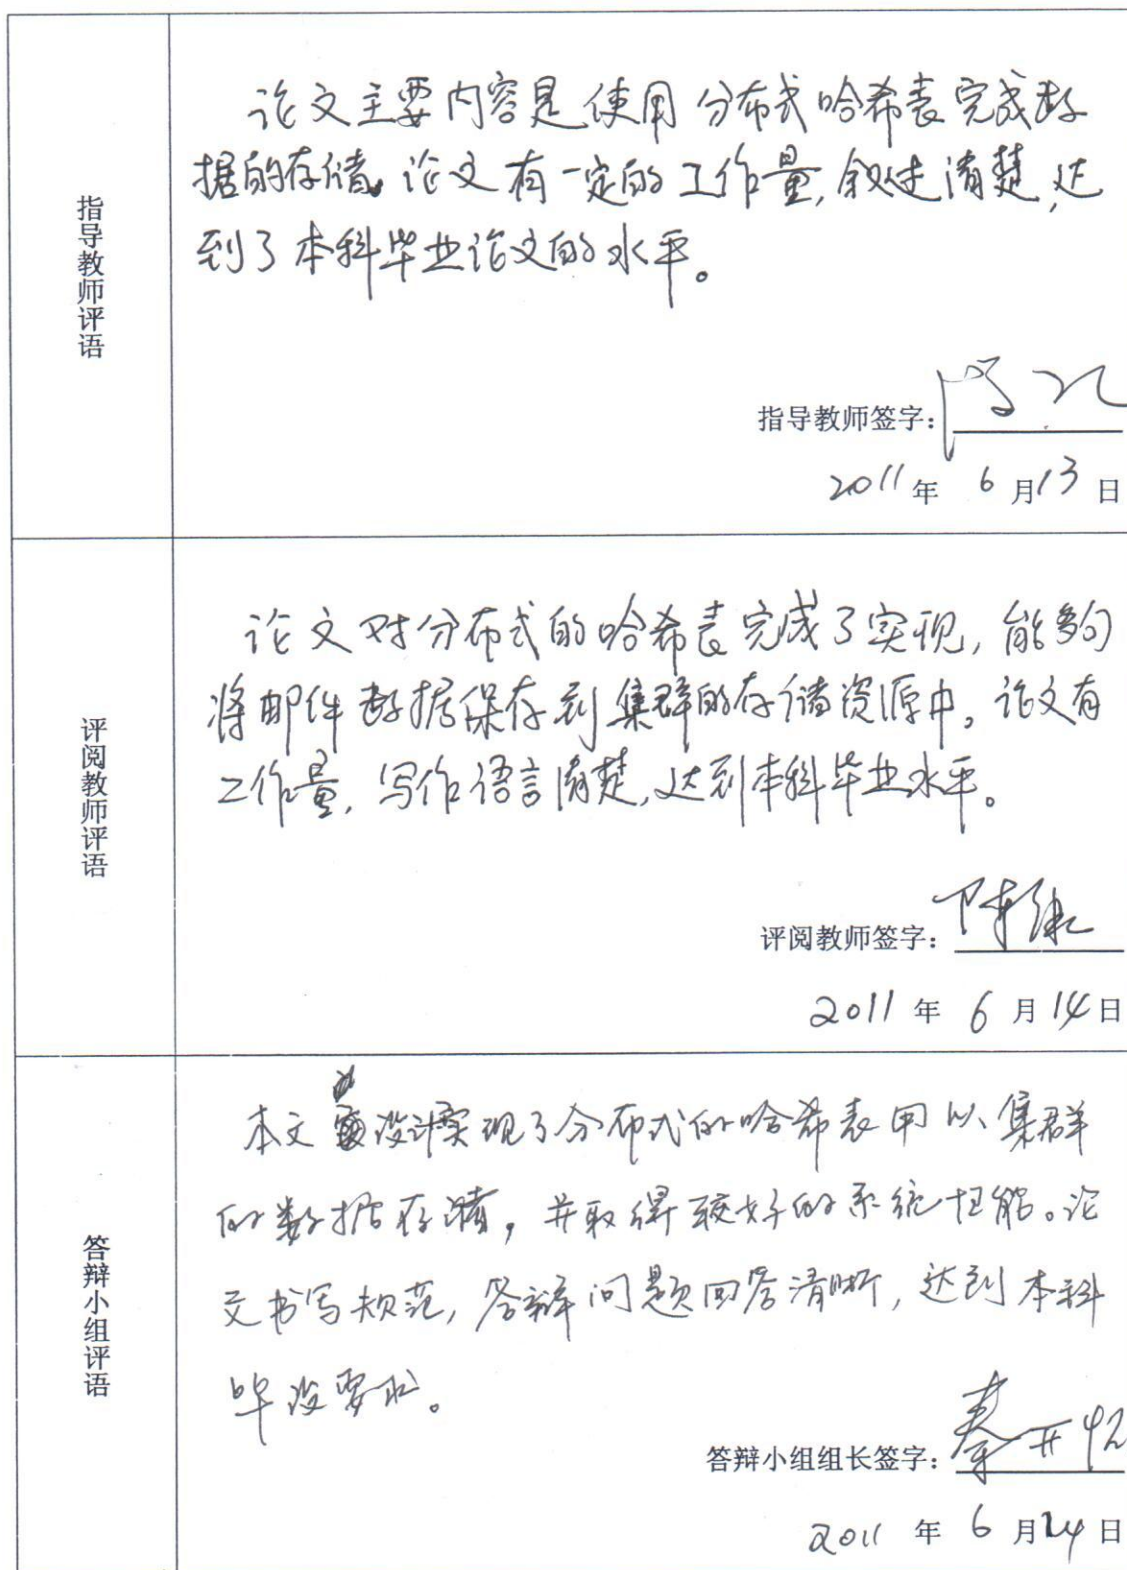 指导教师评语
论文主要内容是使用分布式哈希表完成数
据的存储。论文有一定的工作量,叙述清楚,达
到了本科毕业论文的水平。
指导教师签字:
2011年 6月13日
评阅教师评语
论文对分布式的哈希表完成了实现,能够
将邮件数据保存到集群的存储资源中。论文有
工作量,写作语言清楚,达到本科毕业水平。
评阅教师签字:陈康
2011年 6月14日
答辩小组评语
本文设计实现了分布式的哈希表用以集群
的数据存储,并取得较好的系统性能。论
文书写规范,答辩问题回答清晰,达到本科
毕设要求。
答辩小组组长签字:
2011年 6月24日